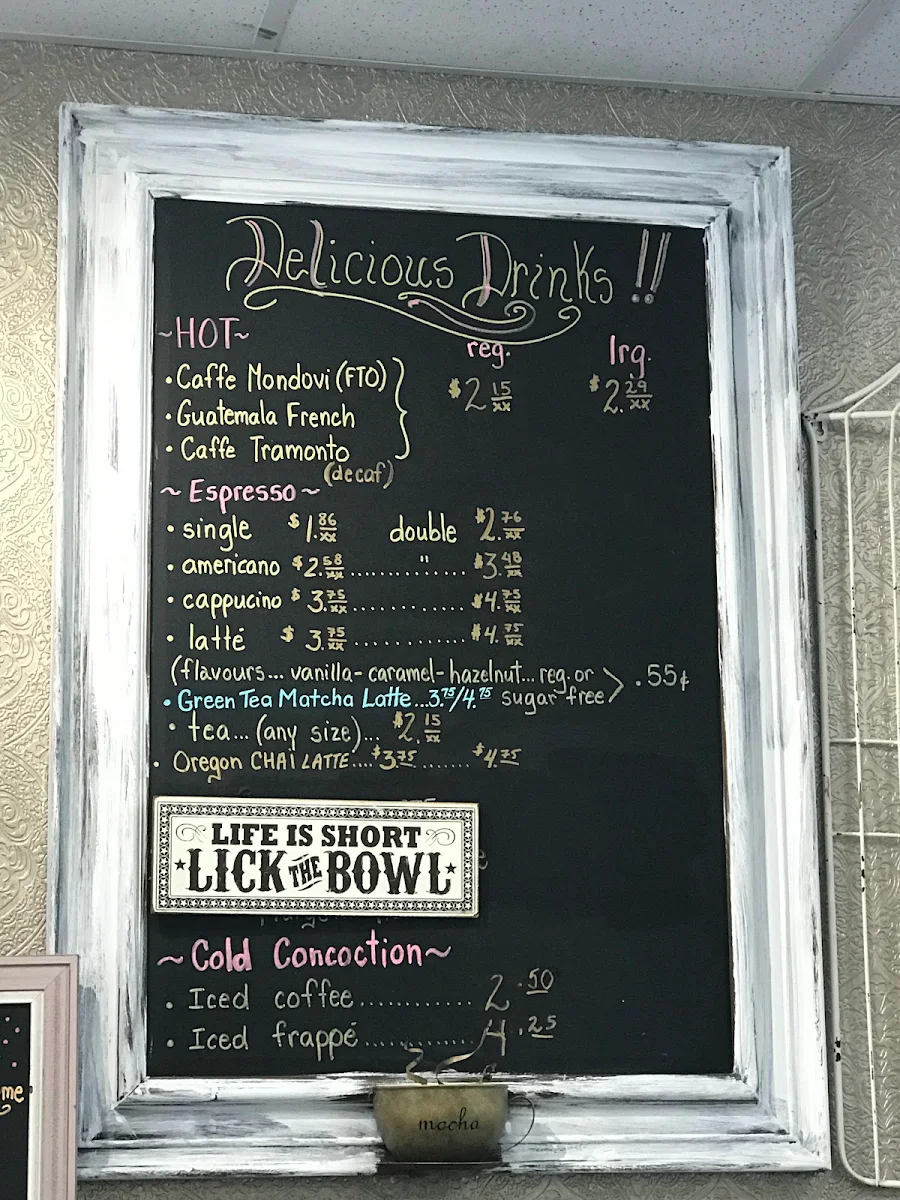 Delicious Drinks !!
~HOT~ reg. lrg.
• Caffe Mondovi (FTO) $2 15/xx $2. 29/xx
• Guatemala French
• Caffe Tramonto
(decaf)
~ Espresso ~
• single $1. 86/xx double $2. 76/xx
• americano $2. 58/xx .......... " ....... $3. 48/xx
• cappucino $3. 75/xx ............ $4. 75/xx
• latté $3. 75/xx ............ $4. 75/xx
(flavours... vanilla-caramel-hazelnut... reg. or sugar free > .55¢
• Green Tea Matcha Latte...3.75/4.75
• tea... (any size)... $2. 15/xx
• Oregon CHAI LATTE....$3.75 ....... $4.75
LIFE IS SHORT
LICK THE BOWL
~ Cold Concoction ~
• Iced coffee........... 2.50
• Iced frappé........... 4.25
mocha
me